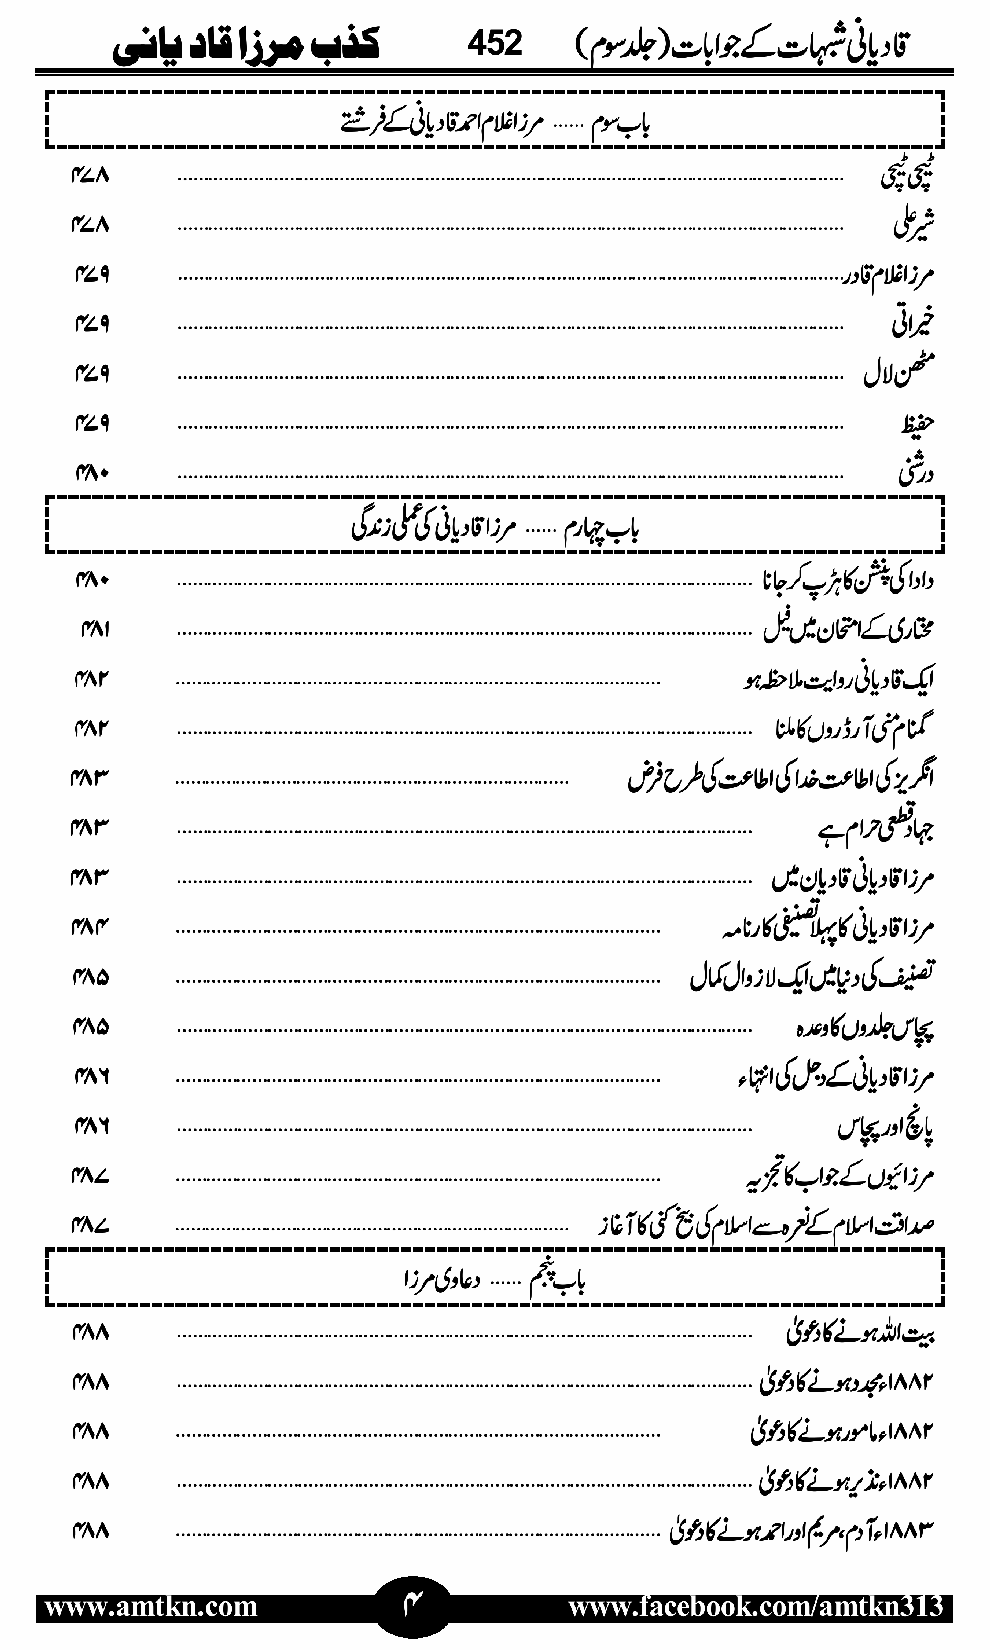 قادیانی شبہات کے جوابات (جلد سوم) 452 کذب مرزا قادیانی
باب سوم ...... مرزا غلام احمد قادیانی کے فرشتے
ٹیچی ٹیچی ۴۷۸
شیر علی ۴۷۸
مرزا غلام قادر ۴۷۹
خیراتی ۴۷۹
مٹھن لال ۴۷۹
حفیظ ۴۷۹
درشنی ۴۸۰
باب چہارم ...... مرزا قادیانی کی عملی زندگی
دادا کی پنشن کا ہڑپ کر جانا ۴۸۰
مختاری کے امتحان میں فیل ۴۸۱
ایک قادیانی روایت ملاحظہ ہو ۴۸۲
گمنام منی آرڈروں کا ملنا ۴۸۲
انگریز کی اطاعت خدا کی اطاعت کی طرح فرض ۴۸۳
جہاد قطعی حرام ہے ۴۸۳
مرزا قادیانی قادیان میں ۴۸۳
مرزا قادیانی کا پہلا تصنیفی کارنامہ ۴۸۴
تصنیف کی دنیا میں ایک لازوال کمال ۴۸۵
پچاس جلدوں کا وعدہ ۴۸۵
مرزا قادیانی کے دجل کی انتہاء ۴۸۶
پانچ اور پچاس ۴۸۶
مرزائیوں کے جواب کا تجزیہ ۴۸۷
صداقت اسلام کے نعرہ سے اسلام کی بیخ کنی کا آغاز ۴۸۷
باب پنجم ...... دعاوی مرزا
بیت اللہ ہونے کا دعویٰ ۴۸۸
۱۸۸۲ء مجدد ہونے کا دعویٰ ۴۸۸
۱۸۸۲ء مامور ہونے کا دعویٰ ۴۸۸
۱۸۸۲ء نذیر ہونے کا دعویٰ ۴۸۸
۱۸۸۳ء آدم، مریم اور احمد ہونے کا دعویٰ ۴۸۸
www.amtkn.com ۴ www.facebook.com/amtkn313